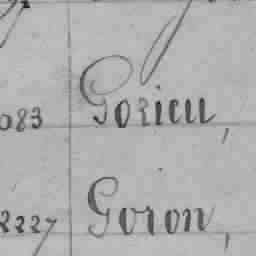 083 Gorieu,
2227 Goron,